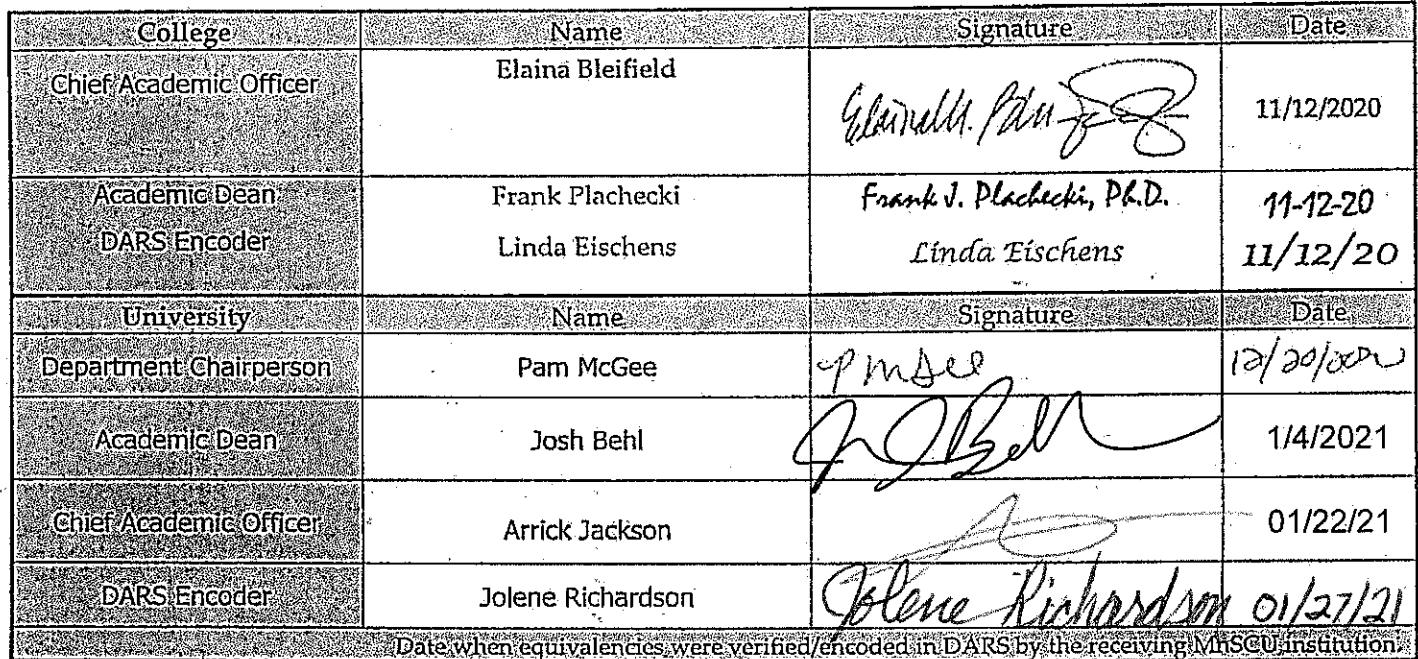 College Name Signature Date
Chief Academic Officer Elaina Bleifield 11/12/2020
Academic Dean Frank Plachecki Frank J. Plachecki, Ph.D. 11-12-20
DARS Encoder Linda Eischens Linda Eischens 11/12/20
University Name Signature Date
Department Chairperson Pam McGee P McGee
Academic Dean Josh Behl 1/4/2021
Chief Academic Officer Arrick Jackson 01/22/21
DARS Encoder Jolene Richardson Jolene Richardson 01/27/21
Date when equivalencies were verified/encoded in DARS by the receiving MnSCU institution